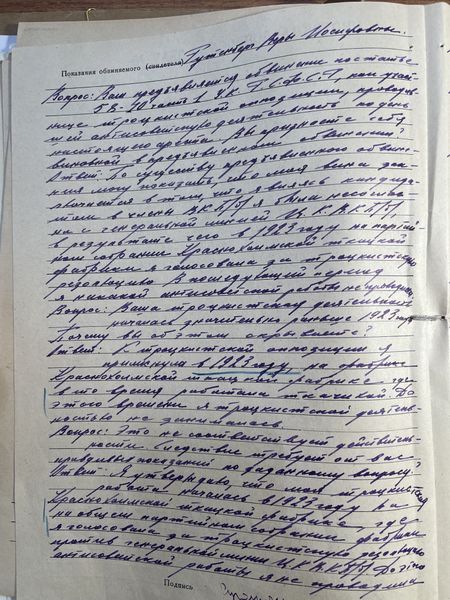 Показания обвиняемого (свидетеля) Гутенберг Веры Иосифовны.
Вопрос: Вам предъявляется обвинение по статье
58-10 часть 1 У.К. Р.С.Ф.С.Р., как участ-
нице троцкистской оппозиции, проводив-
шей антисоветскую деятельность по день
настоящего ареста. Вы признаете себя
виновной в предъявленном обвинении?
Ответ: По существу предъявленного обвине-
ния могу показать, что моя вина заклю-
чается в том, что я являясь кандида-
том в члены В.К.П./б/ я была не соглас-
на с генеральной линией Ц.К.В.К.П./б/
в результате чего в 1923 году на партий-
ном собрании Краснохолмской ткацкой
фабрики я голосовала за троцкистскую
резолюцию. В последующий период
я никакой антисоветской работы не проводила.
Вопрос: Ваша троцкистская деятельность
началась значительно раньше 1923 года.
Почему вы об этом скрываете?
Ответ: К троцкистской оппозиции я
примкнула в 1923 году, на фабрике
Краснохолмской ткацкой фабрике, где
в то время работала ткачихой. До
этого времени я троцкистской деятель-
ностью не занималась.
Вопрос: Это не соответствует действитель-
ности. Следствие требует от вас
правдивых показаний по заданному вопросу?
Ответ: Я утверждаю, что моя троцкистская
работа началась в 1923 году на
Краснохолмской ткацкой фабрике, где
на общем партийном собрании фабрики
я голосовала за троцкистскую резолюцию
против генеральной линии Ц.К.В.К.П./б/. До этого
антисоветской работы я не проводила
Подпись